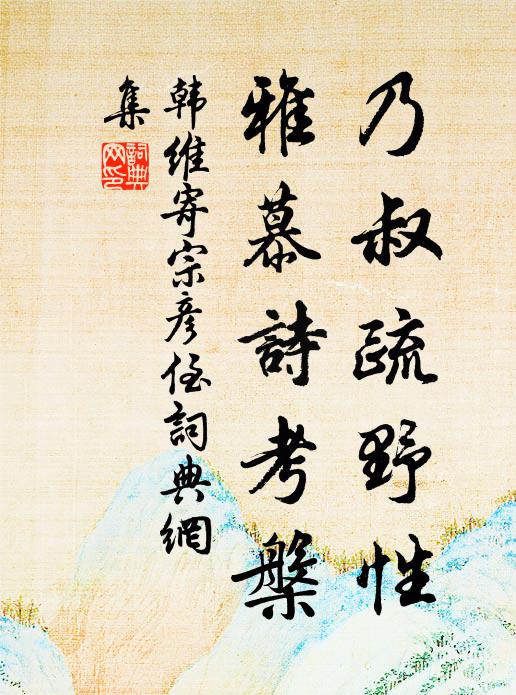 乃叔疏野性
雅慕詩考槃
韩维寄宗彦侄詞典網
集
詞典
网印